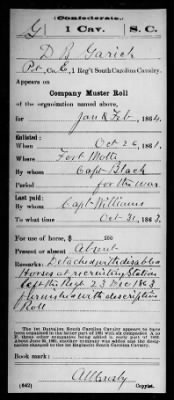 (Confederate.)
G 1 Cav. S. C.
D B Garick
Pvt, Co. G, 1 Reg't South Carolina Cavalry.
Appears on
Company Muster Roll
of the organization named above,
for Jan & Feb, 1864.
Enlisted:
When Oct 26, 1861.
Where Fort Motte
By whom Capt Black
Period for the war
Last paid:
By whom Capt Williams
To what time Oct 31, 1863.
For use of horse, $ 100
Present or absent Absent
Remarks: Detached with disabled
Horses at recruiting Station
left the Regt 23 Dec 1863
furnished with descriptive
Roll
The 1st Battalion South Carolina Cavalry appear to have
been organized in the latter part of 1861 with six companies. A to
F; three other companies being added to early part of 1862.
About June 25, 1862, another company was added and the designation
changed to the 1st Regiment South Carolina Cavalry.
Book mark:
(642) Copyist.